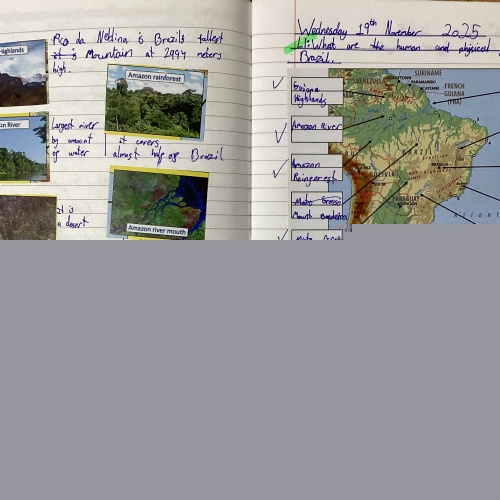 Highlands
Pico da Neblina is Brazils tallest
it is Mountain at 2994 meters
high.
Amazon rainforest
on River
Largest river
by amount
of water
it covers
almost half of Brazil
it is
a desert
Amazon river mouth
Wednesday 19th November 2025
LI: What are the human and physical
Brazil.
Guiana
Highlands
Amazon River
Amazon
Rainforest
Mato Grosso
Mount
SURINAME
GEORGETOWN
PARAMARIBO
CAYENNE
FRENCH
GUIANA
(FRA)
BRAZIL
BOLIVIA
PARAGUAY